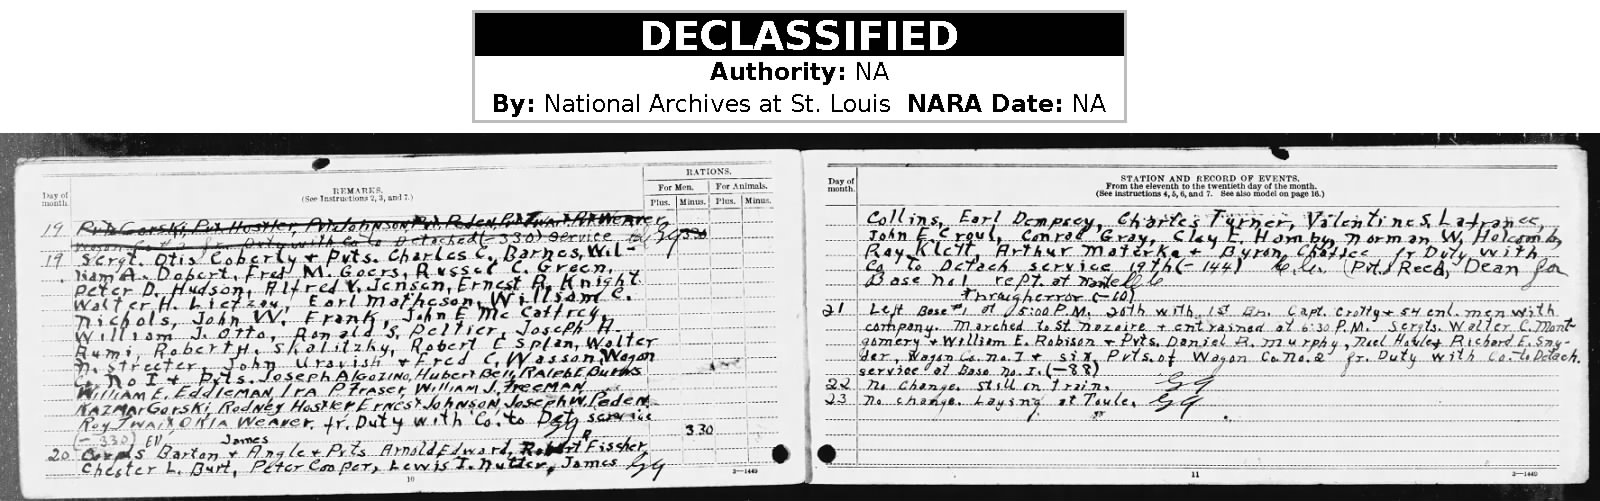 DECLASSIFIED
Authority: NA
By: National Archives at St. Louis NARA Date: NA
REMARKS.
(See Instructions 2, 3, and 7.)
Day of month.
RATIONS.
For Men. For Animals.
Plus. Minus. Plus. Minus.
19 Pvts Gorski, Pvt Hostler, Pvt Johnson Pvt Peden, Pvt Twait Pvt Weaver,
fr. Duty with Co to Detached (-330) Service 330
19 Sergt. Otis Coberly + Pvts. Charles C. Barnes, Wil-
liam A. Dobert, Fred M. Goers, Russel C. Green,
Peter D. Hudson, Alfred V. Jensen, Ernest R. Knight
Walter H. Lietzau, Earl Matheson, William C.
Nichols, John W. Frank, John E Mc Caffrey,
William J. Otto, Ronald S. Peltier, Joseph A.
Rumi, Robert H. Skalitzky, Robert E Splan, Walter
N. Streeter, John Uravish + Fred C, Wasson Wagon
Co. No I + Pvts. Joseph Algozino, Hubert Bell, Ralph E Burns
William E. Eddleman, Ira P. Fraser, William J. Freeman
Kazmar Gorski, Rodney Hostler Ernest Johnson, Joseph W. Peden
Roy Twait Orla Weaver. fr. Duty with Co. to Det. service
(-330) 3.30
James
20 Corpls Barton + Angle + Pvts Arnold Edward, Robert Fisscher,
Chester L. Burt, Peter Cooper, Lewis T. Nutter, James GG
10
3—1449
STATION AND RECORD OF EVENTS.
From the eleventh to the twentieth day of the month.
(See instructions 4, 5, 6, and 7. See also model on page 16.)
Day of month.
Collins, Earl Dempsey, Charles Turner, Valentine S, Lafrance,
John E Croul, Conrad Gray, Clay E. Hamby, Norman W, Holcomb,
Ray Klett Arthur Materka + Byron Chaffee fr Duty with
Co to Detach service 19th (-144) (Pvt. Reed, Dean for
Base No 1 rept. at
Through error (-10)
21 Left Base #1 at 5:00 P.M. 20th with 1st Bn. Capt. Crotty + 54 enl. men with
company. Marched to St Nazaire + entrained at 6:30 P.M. Sergts. Walter C. Mont-
gomery + William E. Robison + Pvts. Daniel R. Murphy, Noel Hayley Richard E. Sny-
der, Wagon Co. no. I + six Pvts. of Wagon Co. No. 2 fr. Duty with Co. to Detach.
service at Base No. I. (-88)
22 No change. Still on train. GG
23 No change. Laying at Toule. GG
11
3—1449